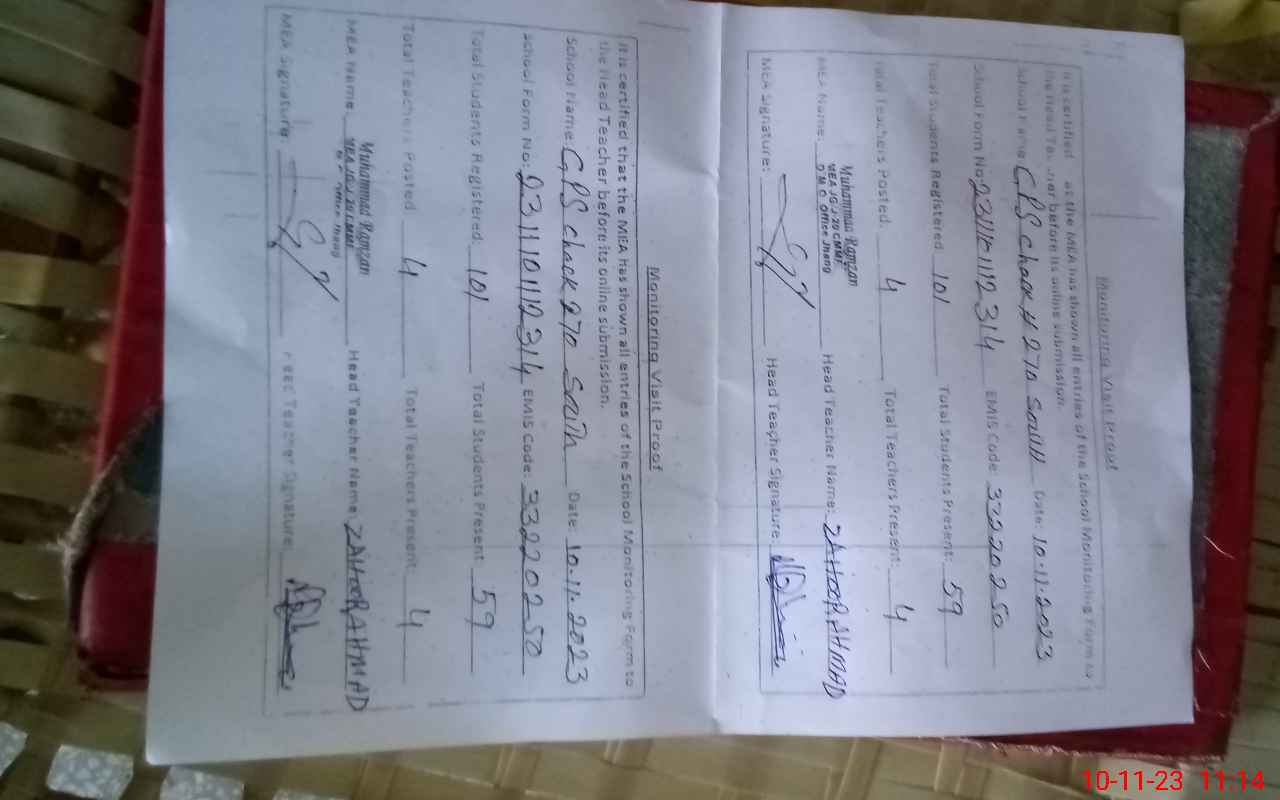 Monitoring Visit Proof
It is certified that the MEA has shown all entries of the School Monitoring Form to
the Head Teacher before its online submission.
School Name: GPS chack # 270 South Date: 10.11.2023
School Form No: EMIS Code: 33220250
Total Students Registered 101 Total Students Present: 59
Total Teachers Posted: 4 Total Teachers Present: 4
Muhammad Ramzan
MEA JG-J-20 CMMF
D M O Office Jhang
MEA Name: Head Teacher Name: ZAHOOR AHMAD
MEA Signature: Head Teacher Signature:
Monitoring Visit Proof
It is certified that the MEA has shown all entries of the School Monitoring Form to
the Head Teacher before its online submission.
School Name: GPS chack 270 South Date: 10.11.2023
School Form No: 2311101112314 EMIS Code: 33220250
Total Students Registered: 101 Total Students Present 59
Total Teachers Posted 4 Total Teachers Present 4
Muhammad Ramzan
MEA JG-J-20 CMMF
Office Jhang
MEA Name: Head Teacher Name: ZAHOOR AHMAD
MEA Signature: Teacher Signature:
10-11-23 11:14